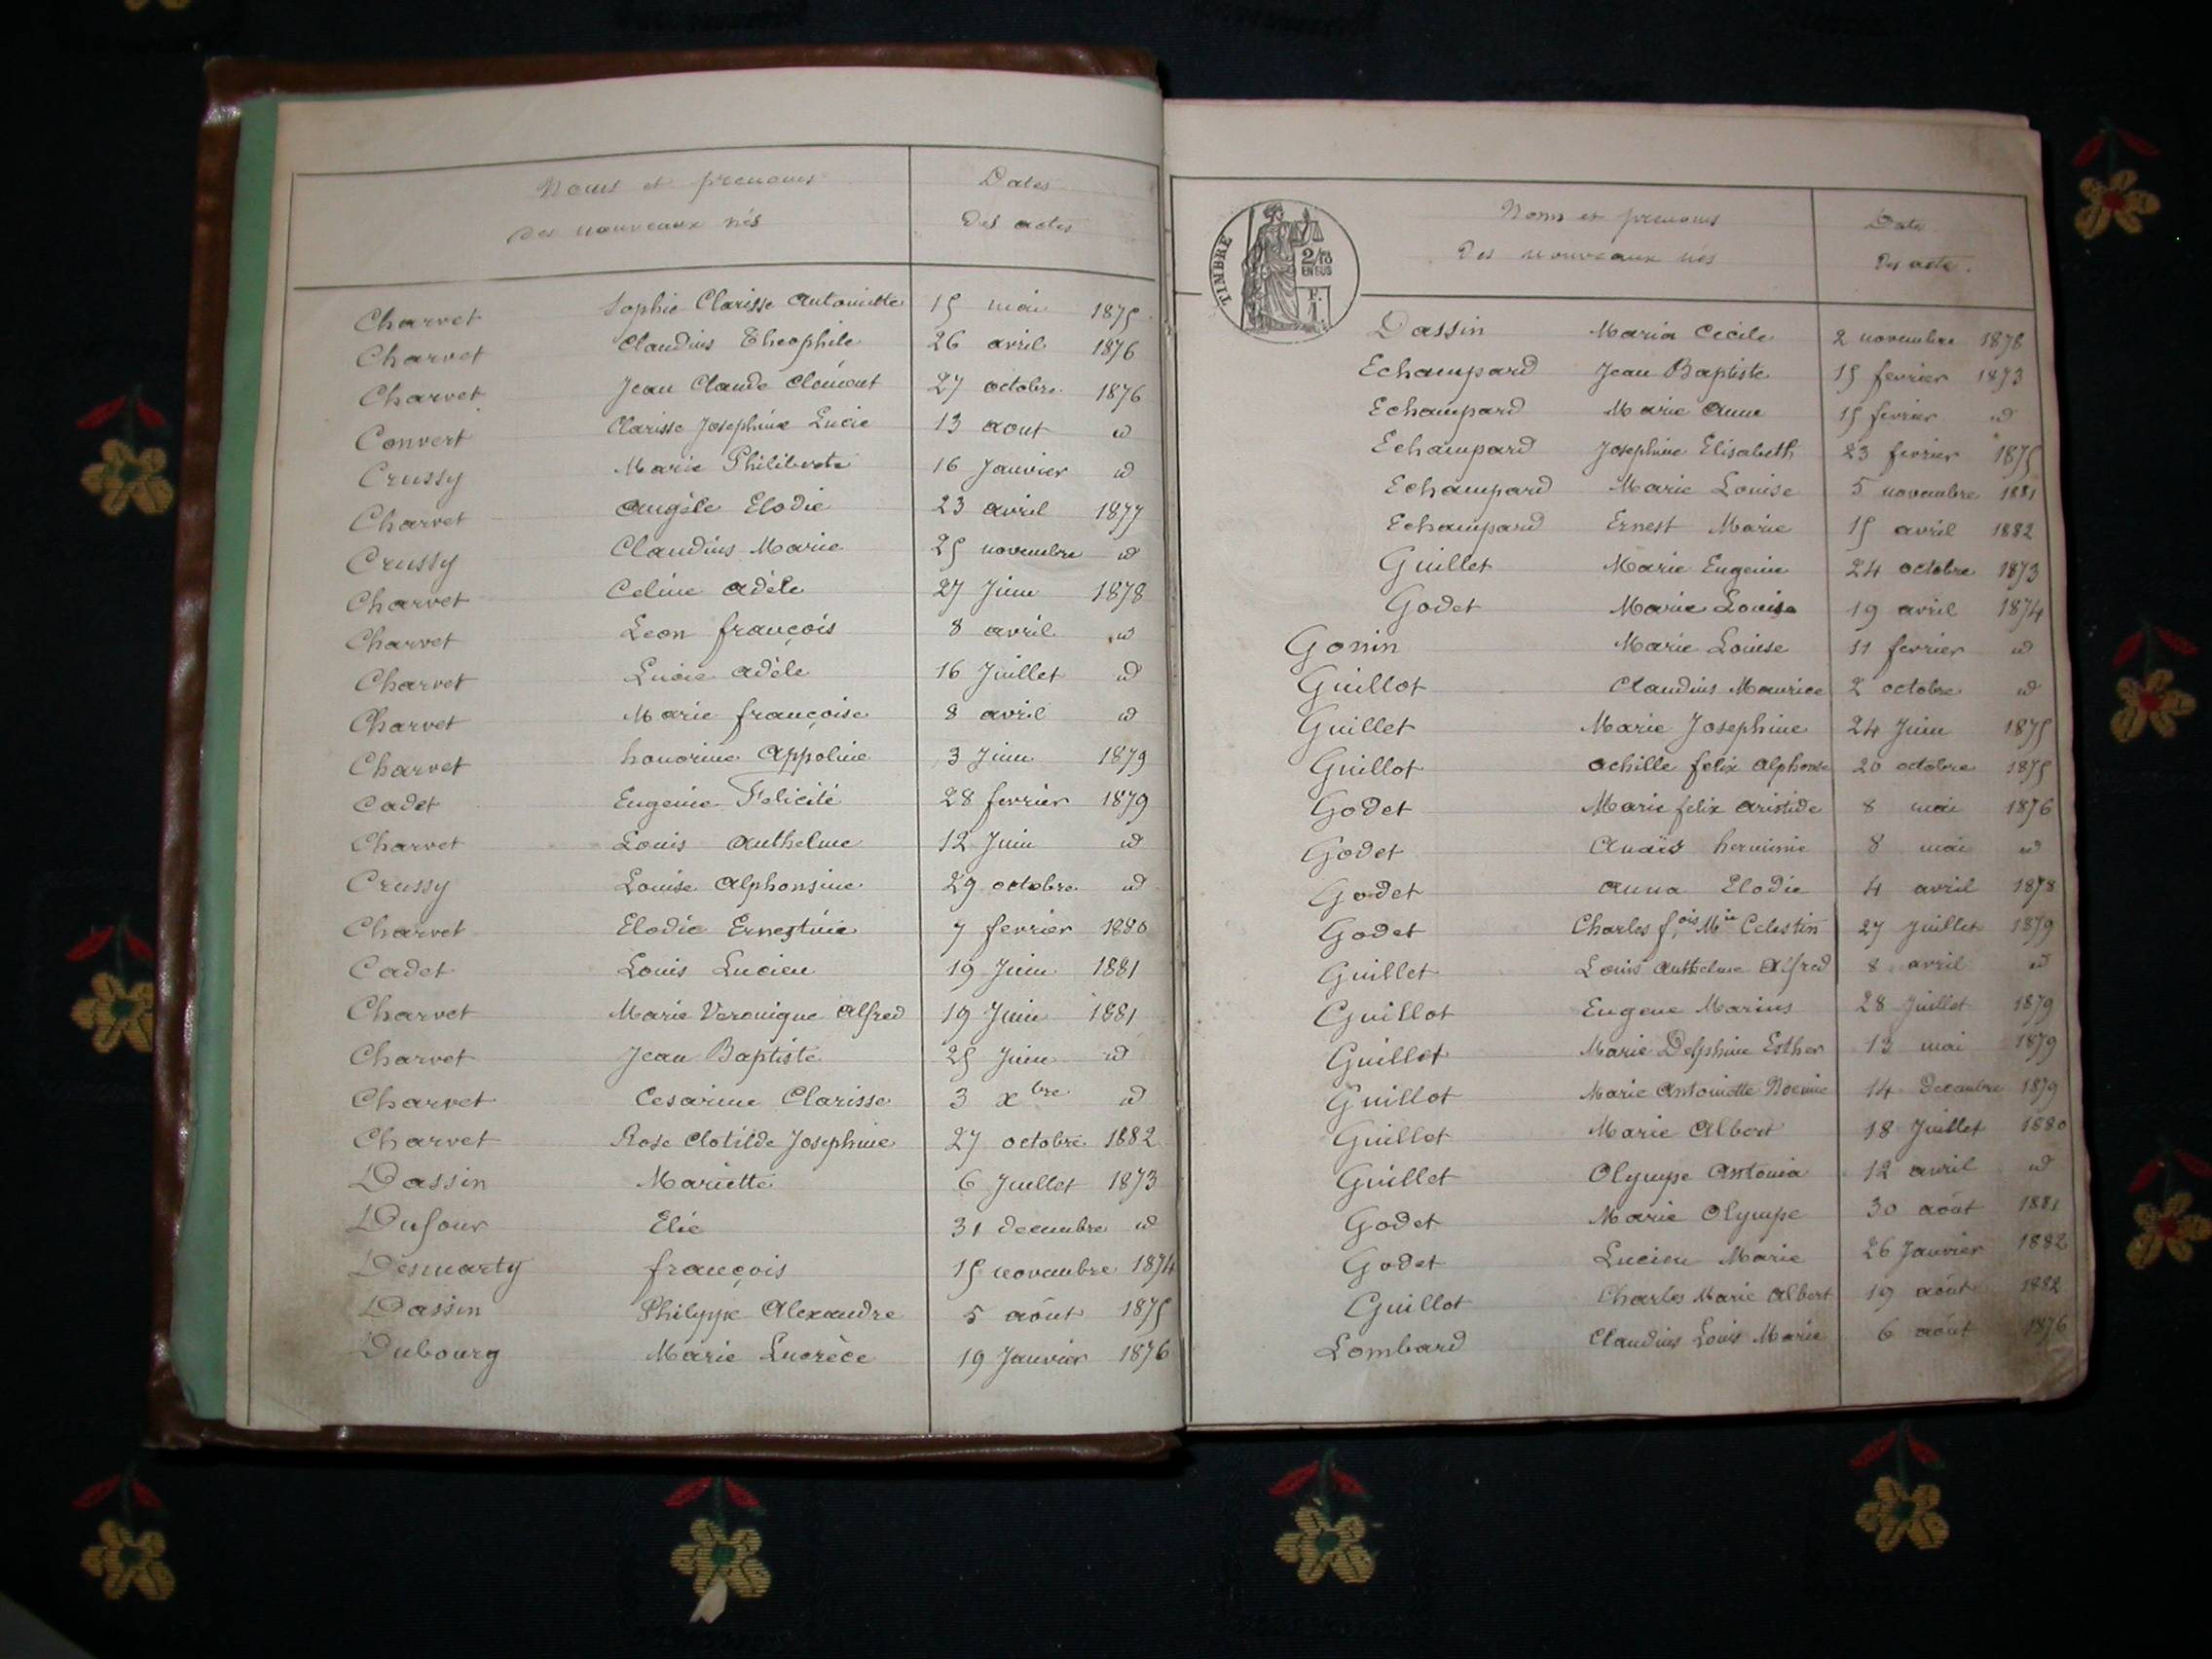 Noms et prenoms
des nouveaux nés
Dates
des actes
Charvet Sophie Clarisse Antoinette 15 mai 1875
Charvet Claudius Theophile 26 avril 1876
Charvet Jean Claude Clément 27 octobre 1876
Convert Clarisse Josephine Lucie 13 aout id
Crussy Marie Philiberte 16 Janvier id
Charvet Angèle Elodie 23 avril 1877
Crussy Claudius Marie 25 novembre id
Charvet Celine Adèle 27 Juin 1878
Charvet Leon françois 8 avril id
Charvet Lucie Adèle 16 Juillet id
Charvet Marie françoise 8 avril id
Charvet honorine Appoline 3 Juin 1879
Cadet Eugenie Felicité 28 fevrier 1879
Charvet Louis Anthelme 12 Juin id
Crussy Louise Alphonsine 29 octobre id
Charvet Elodie Ernestine 7 fevrier 1880
Cadet Louis Lucien 19 Juin 1881
Charvet Marie Veronique Alfred 19 Juin 1881
Charvet Jean Baptiste 25 Juin id
Charvet Cesarine Clarisse 3 xbre id
Charvet Rose Clotilde Josephine 27 octobre 1882
Dassin Mariette 6 Juillet 1873
Dufour Elie 31 decembre id
Desmarty françois 15 novembre 1874
Dassin Philippe Alexandre 5 août 1875
Dubourg Marie Lucrèce 19 Janvier 1876
TIMBRE
2/10
EN SUS
F.
1.
Noms et prenoms
des nouveaux nés
Dates
des acte.
Dassin Maria Cecile 2 novembre 1878
Echampard Jean Baptiste 15 fevrier 1873
Echampard Marie Anne 15 fevrier id
Echampard Josephine Elisabeth 23 fevrier 1875
Echampard Marie Louise 5 novembre 1881
Echampard Ernest Marie 15 avril 1882
Guillet Marie Eugenie 24 octobre 1873
Godet Marie Louise 19 avril 1874
Gonin Marie Louise 11 fevrier id
Guillot Claudius Maurice 2 octobre id
Guillet Marie Josephine 24 Juin 1875
Guillot Achille felix Alphonse 20 octobre 1875
Godet Marie felix Aristide 8 mai 1876
Godet Anaïs herminie 8 mai id
Godet Anna Elodie 4 avril 1878
Godet Charles f.ois Mie Celestin 27 Juillet 1879
Guillet Louis Anthelme Alfred 8 avril id
Guillot Eugene Marius 28 Juillet 1879
Guillot Marie Delphine Esther 13 mai 1879
Guillot Marie Antoinette Noemie 14 decembre 1879
Guillot Marie Albert 18 Juillet 1880
Guillet Olympe Antonia 12 avril id
Godet Marie Olympe 30 août 1881
Godet Lucien Marie 26 Janvier 1882
Guillot Charles Marie Albert 19 août 1882
Lombard Claudius Louis Marie 6 août 1876